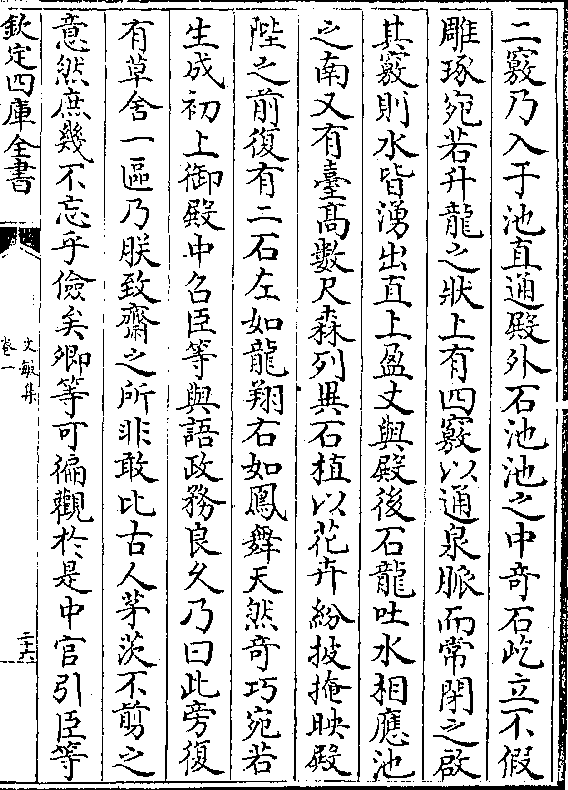 二竅乃入于池直通殿外石池池之中奇石屹立不假
雕琢宛若升龍之狀上有四竅以通泉脈而常閉之啟
其竅則水皆湧出直上盈丈與殿後石龍吐水相應池
之南又有臺高數尺森列異石植以花卉紛披掩映殿
陛之前復有二石左如龍翔右如鳳舞天然奇巧宛若
生成初上御殿中召臣等與語政務良久乃曰此旁復
有草舍一區乃朕致齋之所非敢比古人茅茨不剪之
意然庶幾不忘乎儉矣卿等可徧觀於是中官引臣等
欽定四庫全書
文敏集
卷一
二十六